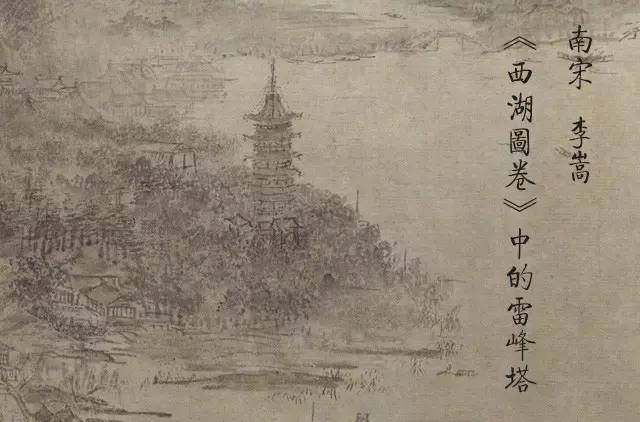 南宋 李嵩
《西湖圖卷》中的雷峰塔